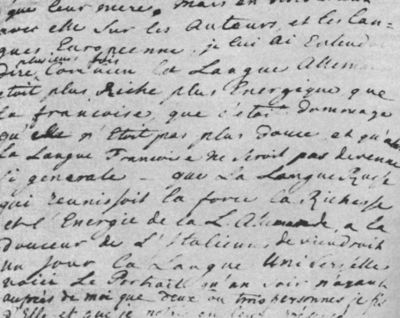 que leur mere. Mais en
avec elle sur les Auteurs, et les Lan=
gues Européenne. je lui ai Entendu
plusieurs fois
dire Combien la Langue Allem
étoit plus Riche plus Energeque que
la francoise, que c'etoit dommage
qu'elle n'étoit pas plus douce, et qu'a
la Langue Francoise ne seroit pas devenue
si generale — que La Langue Russe
qui reunissoit la force la Richesse
et l'Energie de la L. Allemande, a la
douceur de L'Italien, deviendroit
un jour la Langue Universelle.
voici Le Portrait qu'un soir n'ayant
auprès de moi que deux ou trois personnes je fis
d'Elle et que je